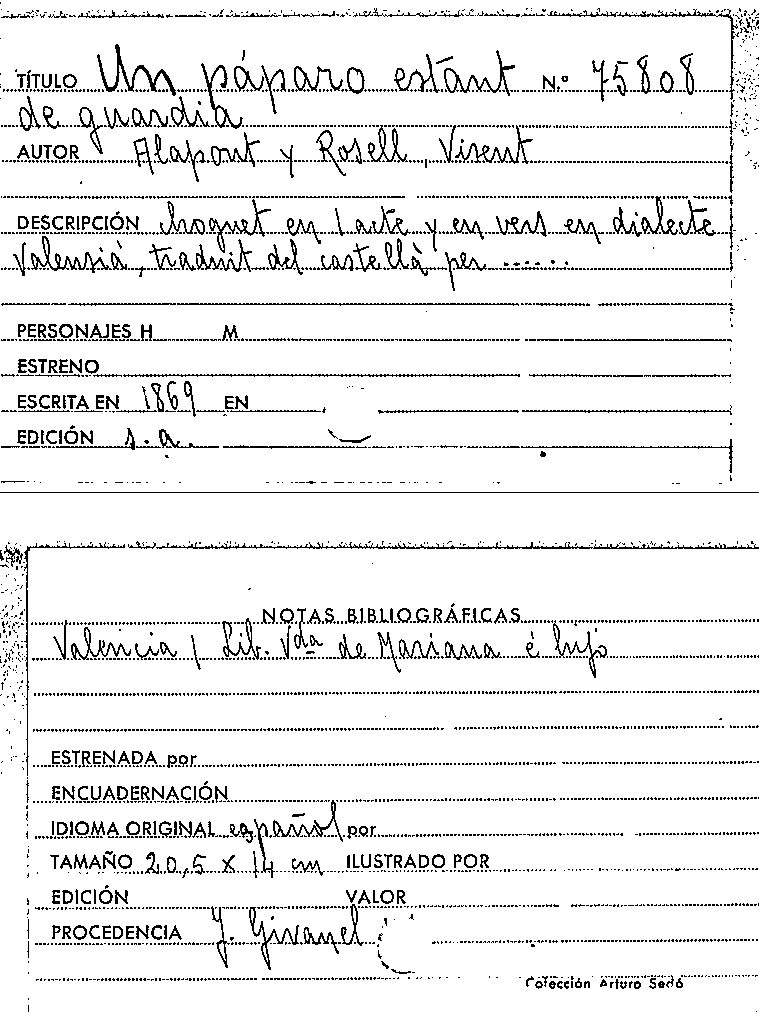 TÍTULO Un páparo estant N.º 75808
de guardia
AUTOR Alapont y Rosell, Visent
DESCRIPCIÓN choguet en 1 acte y en vers en dialecte
Valensiá, traduit del castellà per ......
PERSONAJES H M
ESTRENO
ESCRITA EN 1869 EN
EDICIÓN s.a.
NOTAS BIBLIOGRÁFICAS
Valencia / Lib. Vda de Mariana é hijo
ESTRENADA por
ENCUADERNACIÓN
IDIOMA ORIGINAL español por
TAMAÑO 20,5 x 14 cm ILUSTRADO POR
EDICIÓN VALOR
PROCEDENCIA J. Givanel
Colección Arturo Sedó